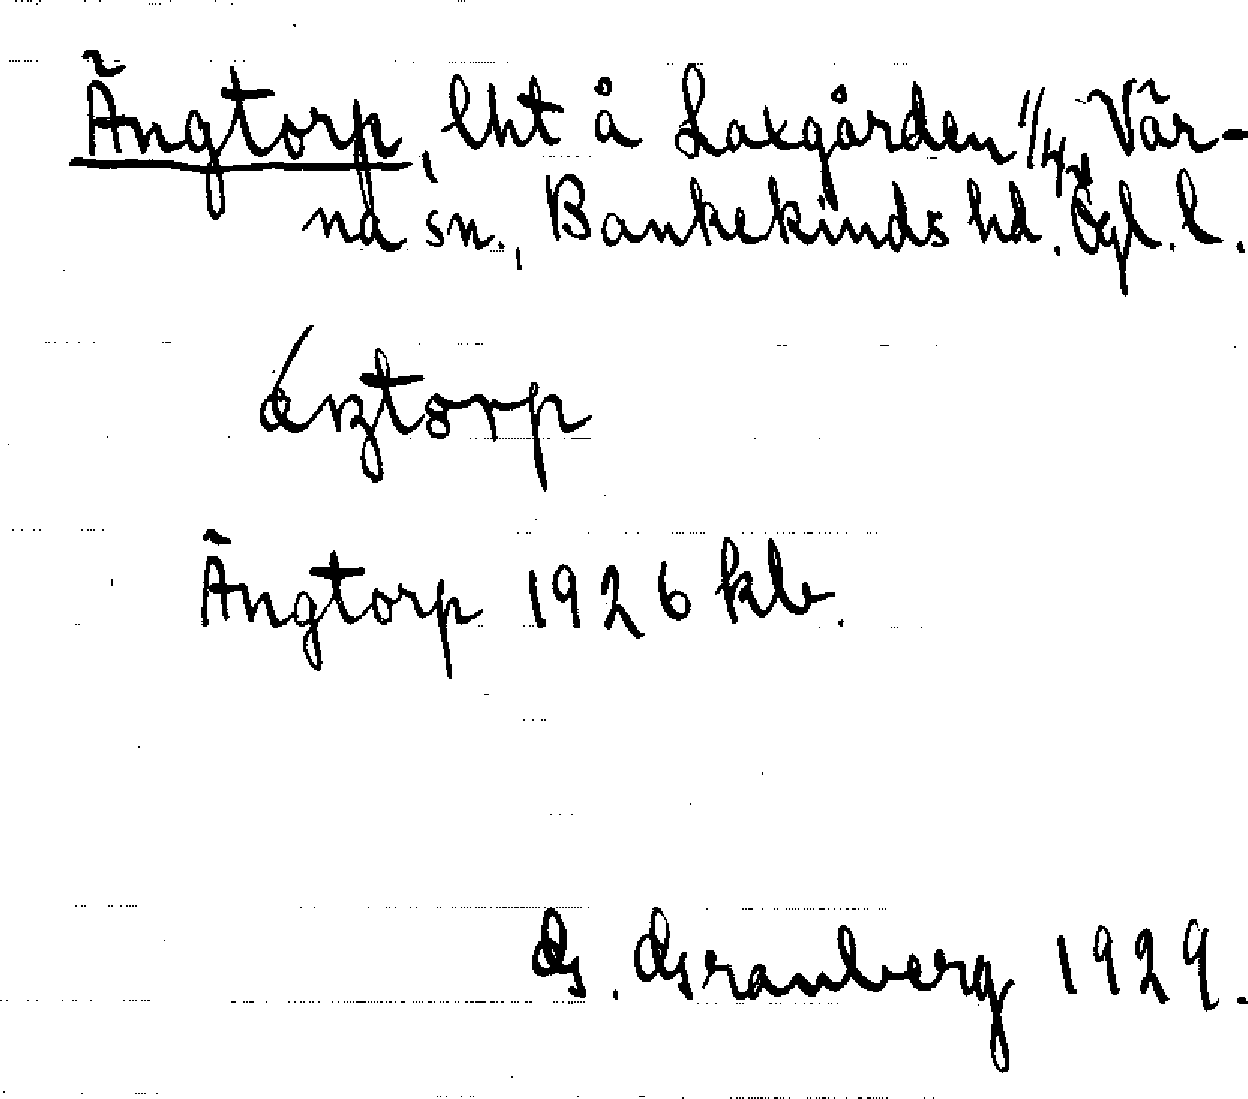 Ängtorp, lht å Laxgården 1/4, Vår-
na sn., Bankekinds hd. Ögl. l.
ǽŋtorp
Ängtorp 1926 kb.
G. Granberg 1929.